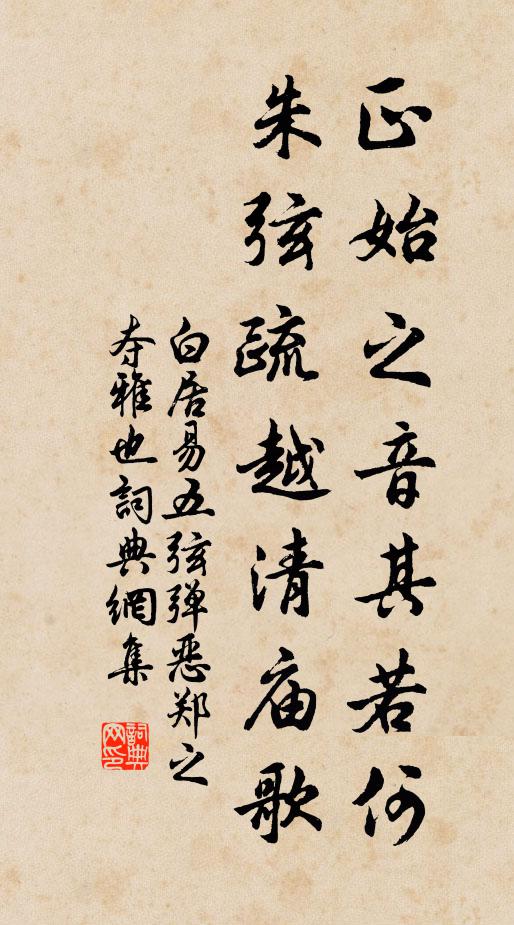 正始之音其若何
朱弦疏越清庙歌
白居易五弦弹恶郑之
夺雅也詞典網集
詞典网印